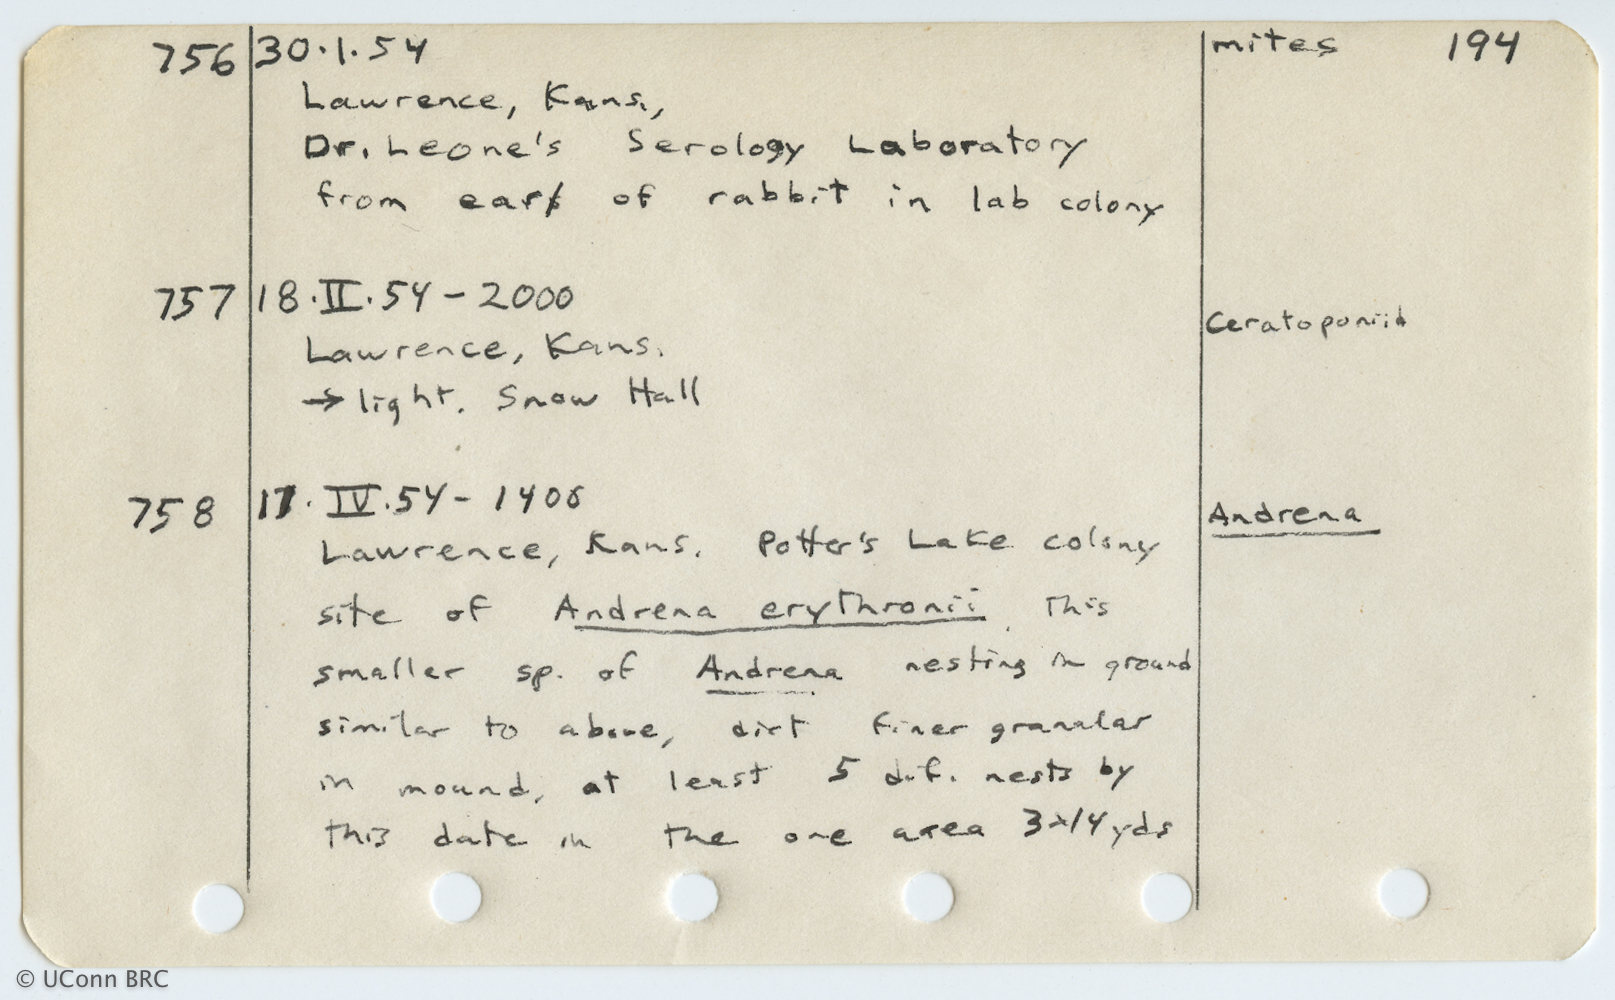 756 30.1.54 mites 194
Lawrence, Kans.,
Dr. Leone's Serology Laboratory
from ear of rabbit in lab colony
757 18.II.54 - 2000
Ceratoponiid
Lawrence, Kans.
→ light. Snow Hall
758 17.IV.54 - 1400
Andrena
Lawrence, Kans. Potter's Lake colony
site of Andrena erythronii. This
smaller sp. of Andrena nesting in ground
similar to above, dirt finer granular
in mound, at least 5 dif. nests by
this date in the one area 3x14yds
© UConn BRC